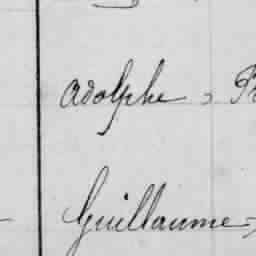 Adolphe,
Guillaume,